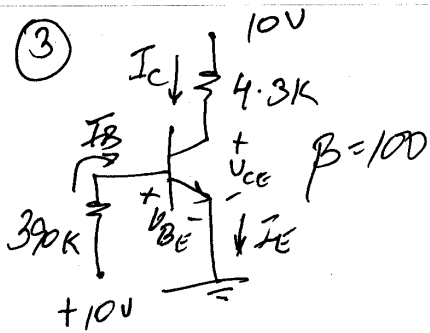 3
10V
IC
4.3K
IB
+
VCE
-
β=100
+
VBE
-
IE
390K
+10V